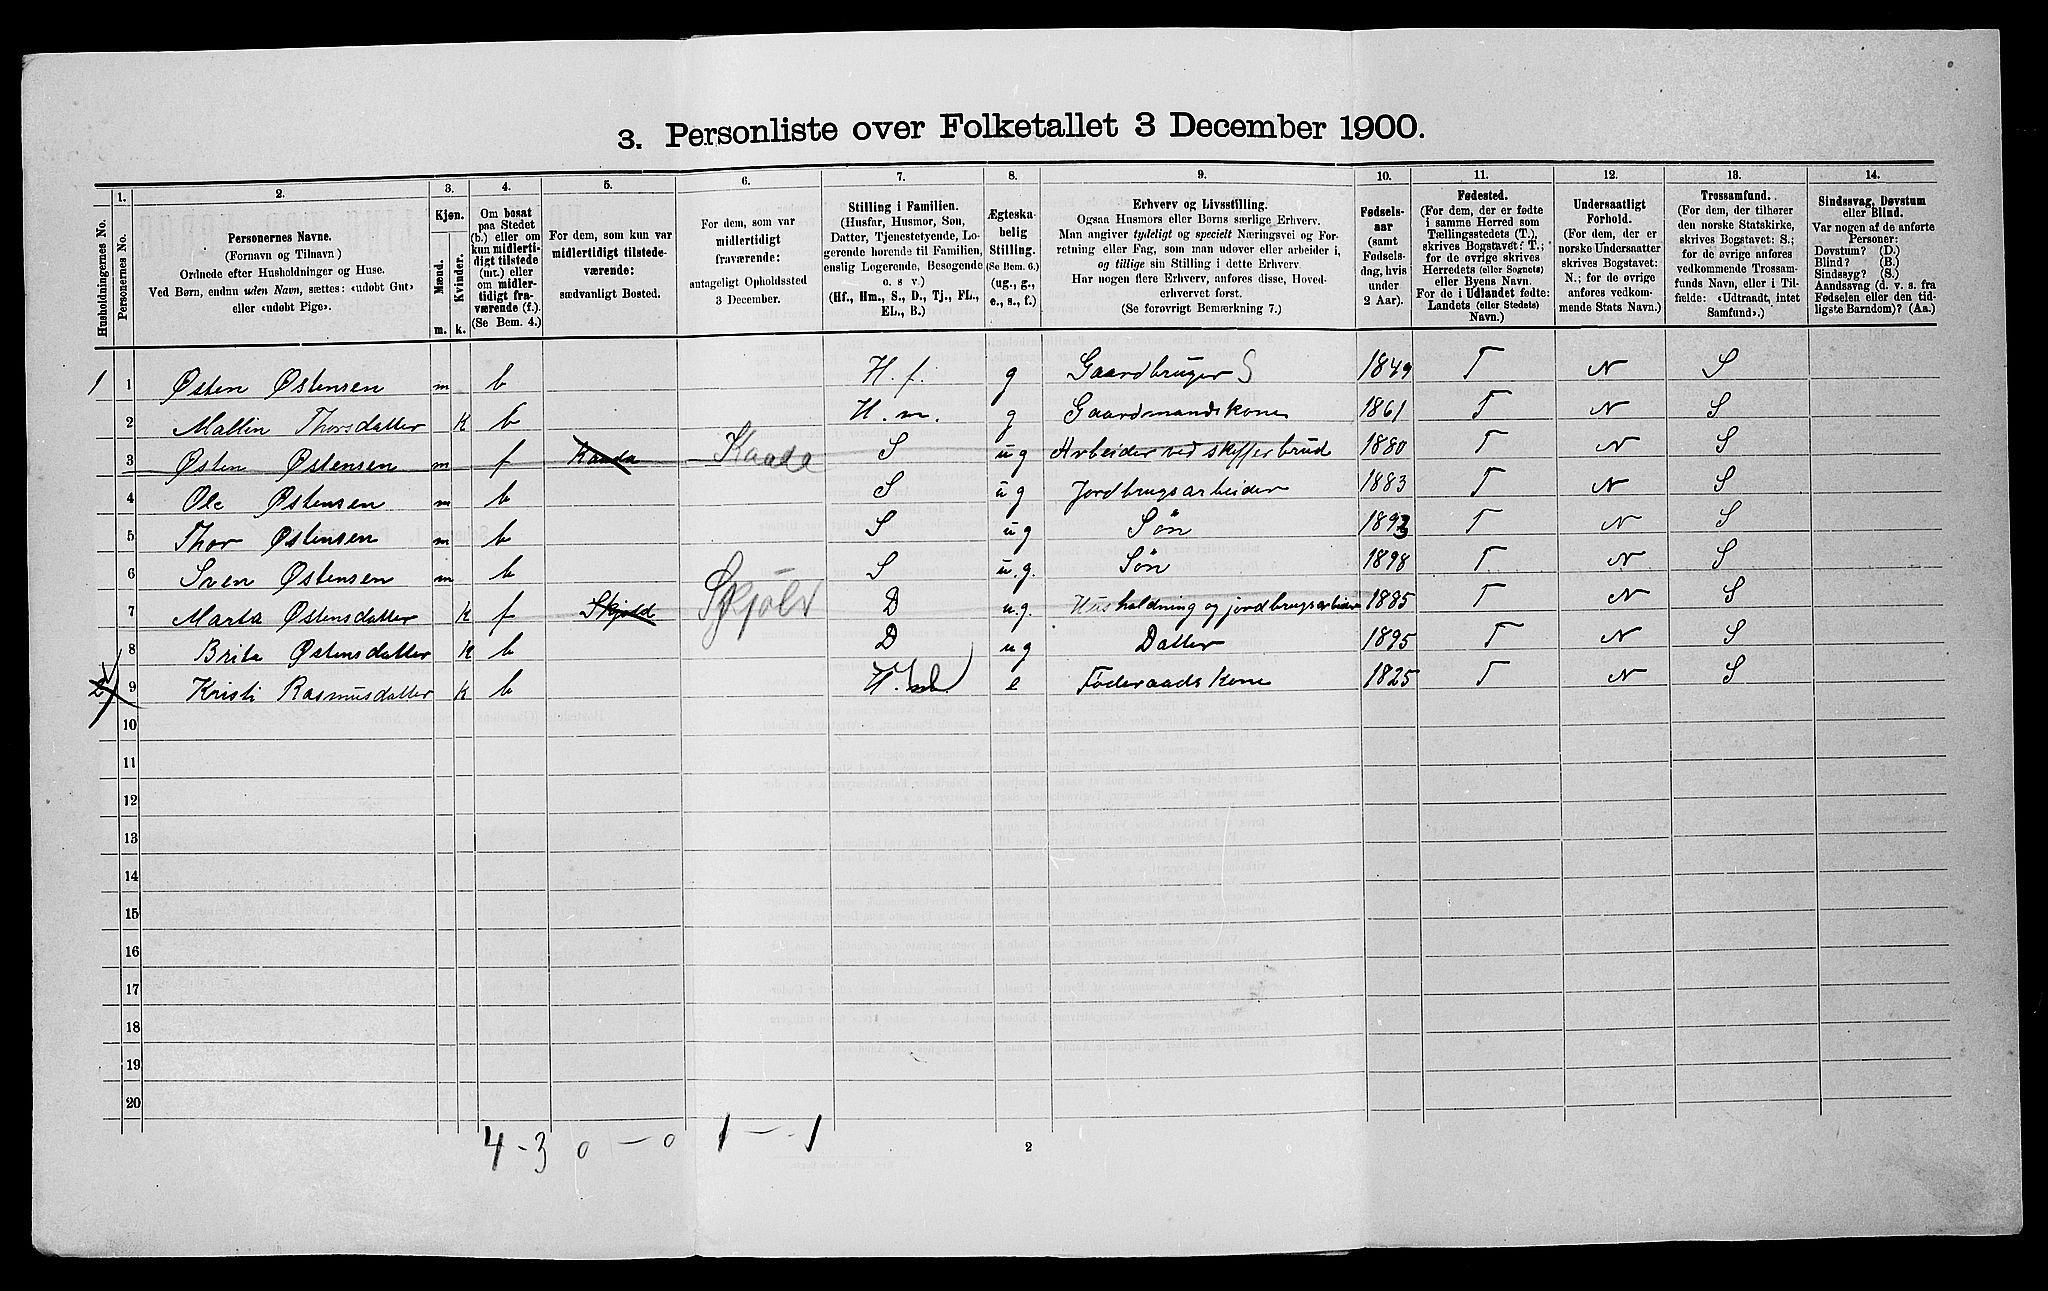 3. Personliste over Folketallet 3 December 1900.
Husholdningernes No.
1. Personernes No.
2. Personernes Navne. (Fornavn og Tilnavn) Ordnede efter Husholdninger og Huse. Ved Børn, endnu uden Navn, sættes: «udøbt Gut» eller «udøbt Pige».
3. Kjøn. Mænd. m. Kvinder. k.
4. Om bosat paa Stedet (b.) eller om kun midlertidigt tilstede (mt.) eller om midlertidigt fraværende (f.). (Se Bem. 4.)
5. For dem, som kun var midlertidigt tilstedeværende: sædvanligt Bosted.
6. For dem, som var midlertidigt fraværende: antageligt Opholdssted 3 December.
7. Stilling i Familien. (Husfar, Husmor, Søn, Datter, Tjenestetyende, Logerende hørende til Familien, enslig Logerende, Besøgende o. s v.) (Hf., Hm., S., D., Tj., FL., EL., B.)
8. Ægteskabelig Stilling. (Se Bem. 6.) (ug., g., e., s., f.)
9. Erhverv og Livsstilling. Ogsaa Husmors eller Børns særlige Erhverv. Man angiver tydeligt og specielt Næringsvei og Forretning eller Fag, som man udøver eller arbeider i, og tillige sin Stilling i dette Erhverv. Har nogen flere Erhverv, anføres disse, Hovederhvervet først. (Se forøvrigt Bemærkning 7.)
10. Fødselsaar (samt Fødselsdag, hvis under 2 Aar).
11. Fødested. (For dem, der er fødte i samme Herred som Tællingsstedets (T.), skrives Bogstavet: T.; for de øvrige skrives Herredets (eller Sognets) eller Byens Navn. For de i Udlandet fødte: Landets (eller Stedets) Navn.)
12. Undersaatligt Forhold. (For dem, der er norske Undersaatter skrives Bogstavet: N.; for de øvrige anføres vedkommende Stats Navn.)
13. Trossamfund. (For dem, der tilhører den norske Statskirke, skrives Bogstavet: S.; for de øvrige anføres vedkommende Trossamfunds Navn, eller i Tilfælde: «Udtraadt, intet Samfund».)
14. Sindssvag, Døvstum eller Blind. Var nogen af de anførte Personer: Døvstum? (D.) Blind? (B.) Sindssyg? (S.) Aandssvag (d. v. s. fra Fødselen eller den tidligste Barndom)? (Aa.)
1 1 Østen Østensen m b H. f. g Gaardbruger S 1849 T N S
2 Mallin Thorsdatter K b H. m. g Gaardmandskone 1861 T N S
3 Østen Østensen m f Kaada Kaada S ug Arbeider ved skifferbrud 1880 T N S
4 Ole Østensen m b S ug Jordbrugsarbeider 1883 T N S
5 Thor Østensen m b S ug Søn 1893 T N S
6 Sven Østensen m b S u.g. Søn 1898 T. N S
7 Marta Østensdatter K f Skjold Skjold D u.g. Husholdning og jordbrugsarbeider 1885 T N S
8 Brita Østensdatter K b D ug Datter 1895 T N S
2 9 Kristi Rasmusdatter K b H. e Føderaadskone 1825 T N S
10
11
12
13
14
15
16
17
18
19
20
4 - 3 0 - 0 1 - 1
2